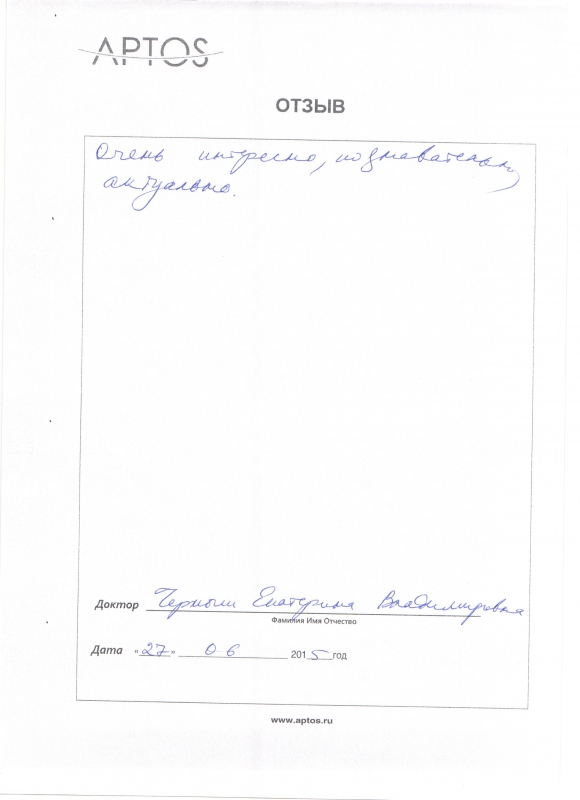 APTOS
ОТЗЫВ
Очень интересно, познавательно,
актуально.
Доктор Черныш Екатерина Владимировна
Фамилия Имя Отчество
Дата «27» 06 2015 год
www.aptos.ru